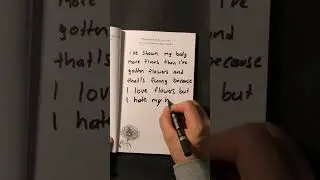 i've shown my body
more times than i've
gotten flowers and
that's funny because
I love flowers but
I hate my